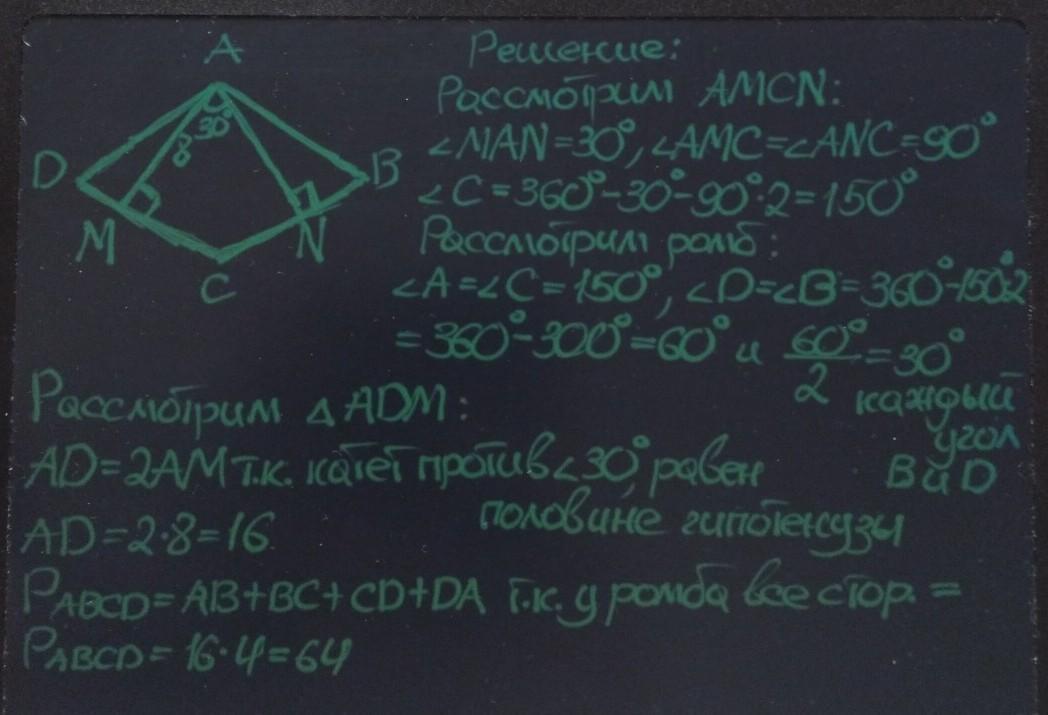 A
30°
8
D
B
M
N
C
Решение:
Рассмотрим AMCN:
∠MAN=30°, ∠AMC=∠ANC=90°
∠C=360°-30°-90°·2=150°
Рассмотрим ромб:
∠A=∠C=150°, ∠D=∠B=360°-150°·2
=360°-300°=60° и 60°/2=30°
каждый
угол
В и D
Рассмотрим △ADM:
AD=2AM т.к. катет против ∠30°, равен
половине гипотенузы
AD=2·8=16
PABCD=AB+BC+CD+DA т.к. у ромба все стор. =
PABCD=16·4=64